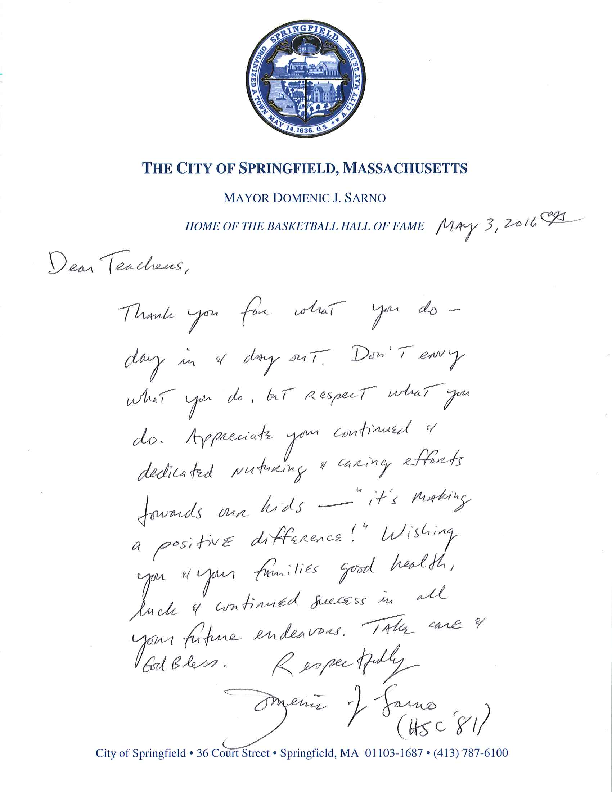 SPRINGFIELD,
MAY 14, 1636. U.S.
THE CITY OF SPRINGFIELD, MASSACHUSETTS
MAYOR DOMENIC J. SARNO
HOME OF THE BASKETBALL HALL OF FAME May 3, 2016
Dear Teachers,
Thank you for what you do –
day in & day out. Don't envy
what you do, but respect what you
do. Appreciate your continued &
dedicated nuturing & caring efforts
towards our kids — "it's making
a positive difference!" Wishing
you & your families good health,
luck & continued success in all
your future endeavors. Take care &
God Bless. Respectfully
Domenic J Sarno
(HSC '81)
City of Springfield • 36 Court Street • Springfield, MA 01103-1687 • (413) 787-6100